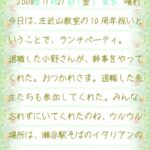 2008年11月21日(金) 天気 晴れ
今日は、左近山教室の10周年祝いと
いうことで、ランチパーティ。
退職した小野さんが、幹事をやって
くれた。おつかれさま。退職した先
生たちも参加してくれた。みんな、
忘れずにいてくれたのね、ウルウル
場所は、瀬谷駅そばのイタリアンの